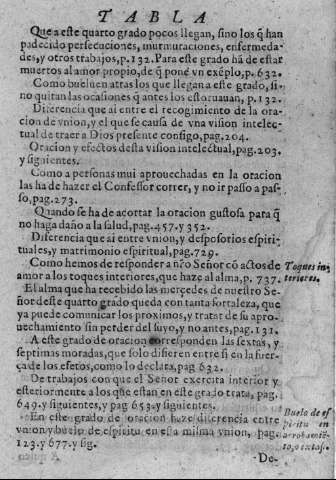 TABLA
Que a este quarto grado pocos llegan, sino los q̃ han
padecido persecuciones, murmuraciones, enfermeda-
des, y otros trabajos, p. 132. Para este grado hã de estar
muertos al amor propio, de q̃ ponẽ vn exẽplo, p. 632.
Como bueluen atras los que llegan a este grado, si
no quitan las ocasiones q̃ antes los estoruauan, p. 132.
Diferencia que ai entre el recogimiento de la ora
cion de vnion, y el que se causa de vna vision intelec-
tual de traer a Dios presente consigo, pag. 204.
Oracion y efectos desta vision intelectual, pag. 203.
y siguientes.
Como a personas mui aprouechadas en la oracion
las ha de hazer el Confessor correr, y no ir passo a pas-
so, pag. 273.
Quando se ha de acortar la oracion gustosa para q̃
no haga daño a la salud, pag. 457. y 352.
Diferencia que ai entre vnion, y desposorios espiri-
tuales, y matrimonio espiritual, pag. 729.
Como hemos de responder a nr̃o Señor cõ actos de
amor a los toques interiores, que haze al alma, p. 737.
Toques in-
teriores.
El alma que ha recebido las mercedes de nuestro Se-
ñor deste quarto grado queda con tanta fortaleza, que
ya puede comunicar los proximos, y tratar de su apro-
uechamiento sin perder del suyo, y no antes, pag. 131.
A este grado de oracion corresponden las sextas, y
septimas moradas, que solo difieren entre si en la fuer-
ça de los efetos, como lo declara, pag 632.
De trabajos con que el Señor exercita interior y
esteriormente a los que estan en este grado trata, pag.
649. y siguientes, y pag 653. y siguientes.
En este grado de oracion haze diferencia entre
vnion y buelo de espiritu en esta misma vnion, pag.
123. y 677. y sig.
Buelo de es
piritu en
arrobamiẽ-
to, o extasi.
De-